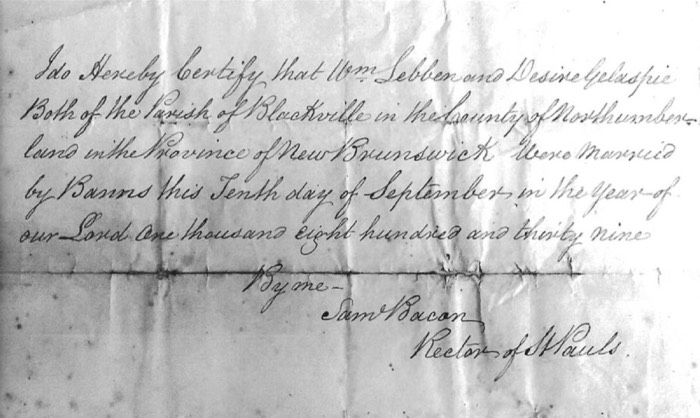 I do Hereby Certify that Wm Lebben and Desire Gelaspie
Both of the Parish of Blackville in the County of Northumber-
land in the Province of New Brunswick Were Married
by Banns this Tenth day of September in the Year of
our Lord One thousand eight hundred and thirty nine
By me -
Saml Bacon
Rector of St Pauls.